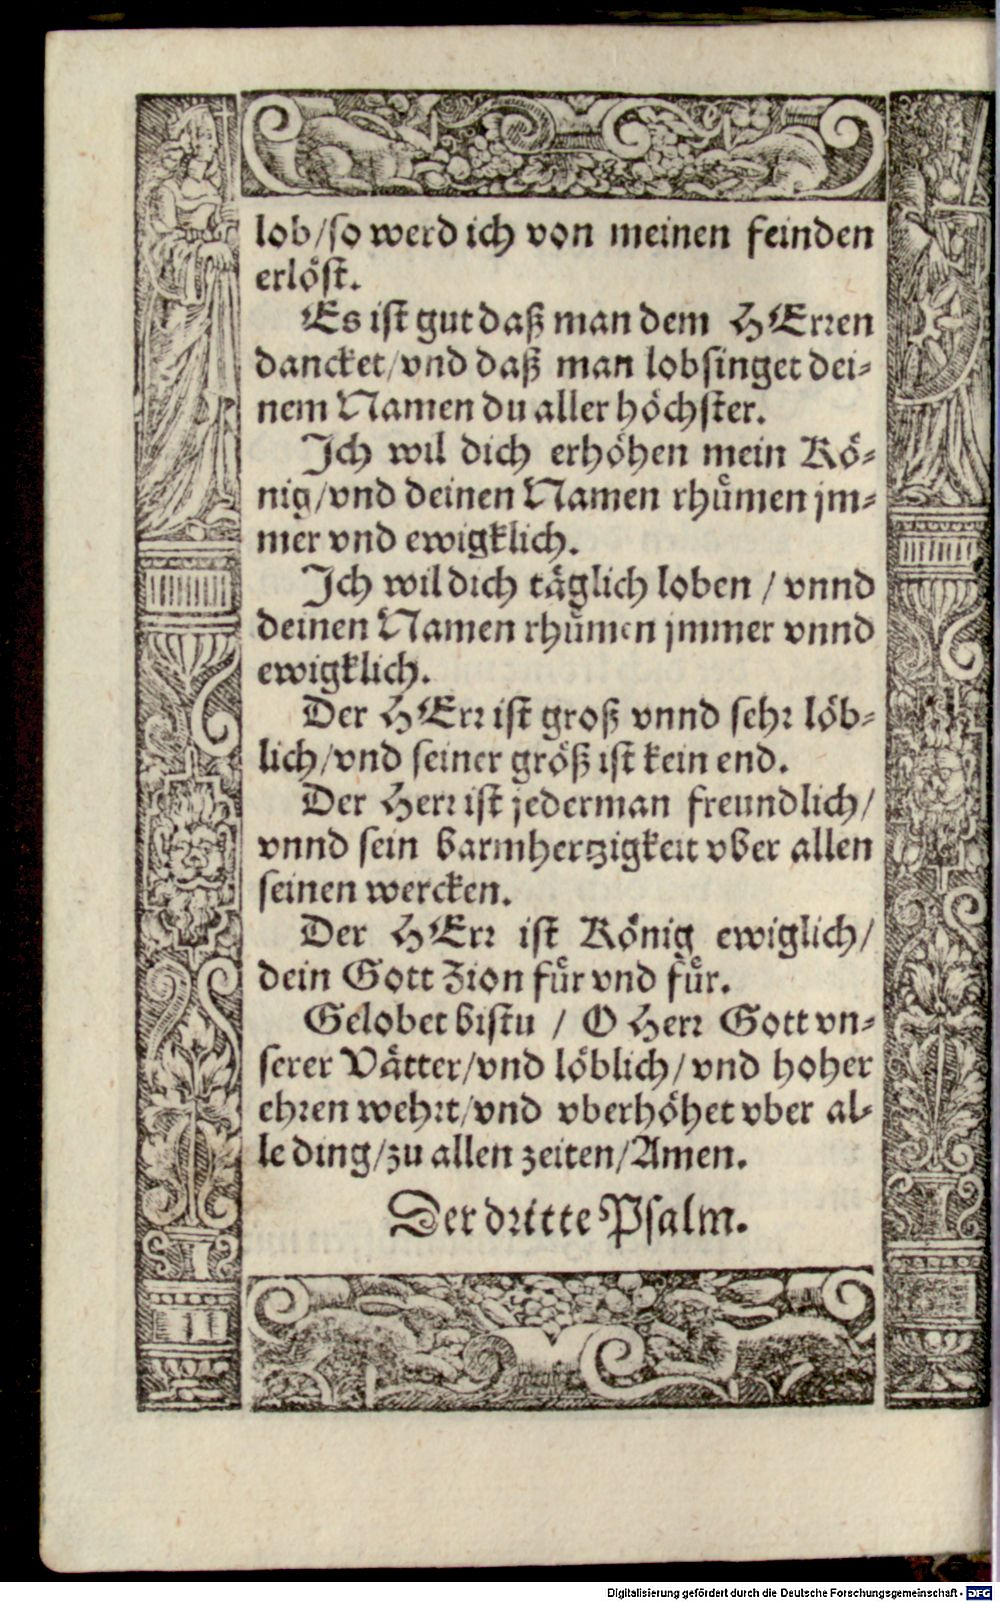 lob/so werd ich von meinen feinden
erlöst.
Es ist gut daß man dem HErren
dancket/vnd daß man lobsinget dei-
nem Namen du aller höchster.
Ich wil dich erhöhen mein Kö-
nig/vnd deinen Namen rhümen jm-
mer vnd ewigklich.
Ich wil dich täglich loben / vnnd
deinen Namen rhümen jmmer vnnd
ewigklich.
Der HErr ist groß vnnd sehr löb-
lich/vnd seiner größ ist kein end.
Der Herr ist jederman freundlich/
vnnd sein barmhertzigkeit vber allen
seinen wercken.
Der HErr ist König ewiglich/
dein Gott Zion für vnd für.
Gelobet bistu / O Herr Gott vn-
serer Vätter/vnd löblich/vnd hoher
ehren wehrt/vnd vberhöhet vber al-
le ding/zu allen zeiten/Amen.
Der dritte Psalm.
Digitalisierung gefördert durch die Deutsche Forschungsgemeinschaft - DFG